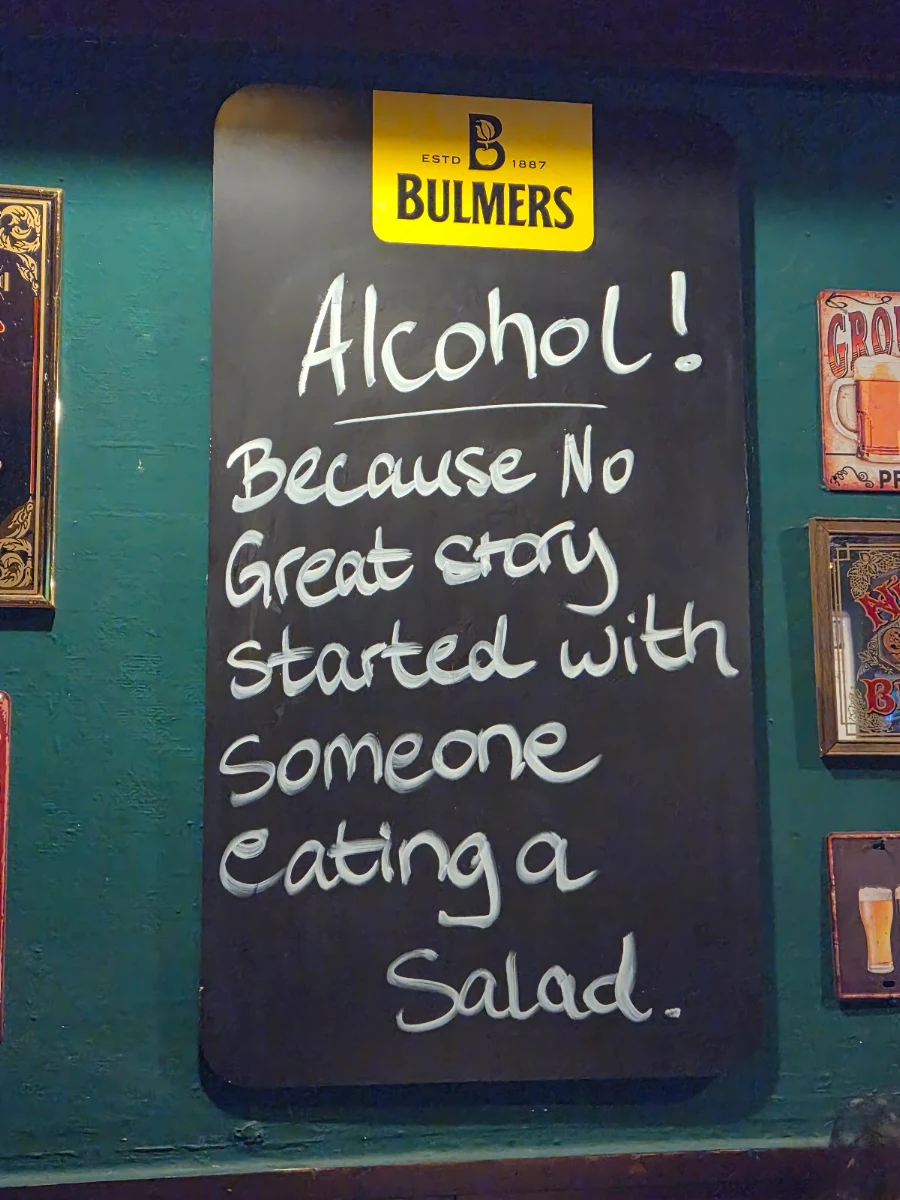 B
ESTD 1887
BULMERS
Alcohol!
Because No
Great story
started with
Someone
eating a
Salad.